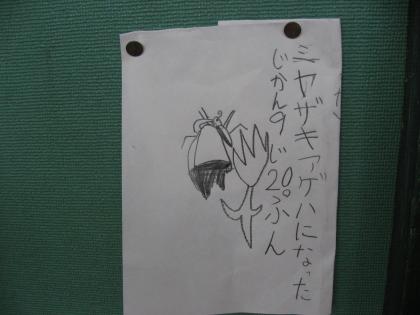 ミヤザキアゲハになった
じかん9じ20ぷん